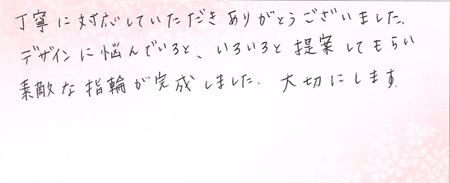 丁寧に対応していただきありがとうございました。
デザインに悩んでいると、いろいろと提案してもらい
素敵な指輪が完成しました。大切にします。